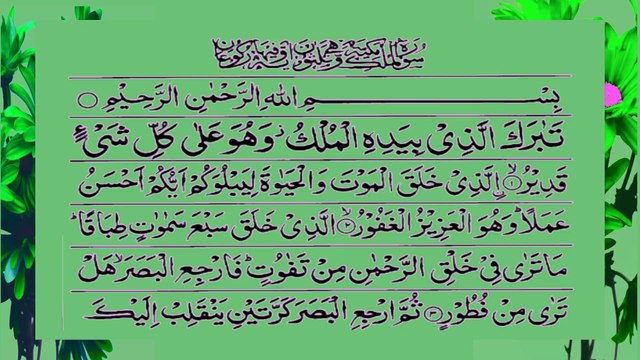 سُوْرَةُ الْمُلْكِ مَكِّيَّةٌ وَّهِيَ ثَلٰثُوْنَ اٰيَةً وَّفِيْهَا رُكُوْعَانِ
بِسْمِ اللّٰهِ الرَّحْمٰنِ الرَّحِيْمِ
تَبٰرَكَ الَّذِىْ بِيَدِهِ الْمُلْكُ ز وَهُوَ عَلٰى كُلِّ شَىْءٍ
قَدِيْرُ ۙ﴿۱﴾ اِۨلَّذِىْ خَلَقَ الْمَوْتَ وَالْحَيٰوةَ لِيَبْلُوَكُمْ اَيُّكُمْ اَحْسَنُ
عَمَلًا ؕ وَهُوَ الْعَزِيْزُ الْغَفُوْرُ ۙ﴿۲﴾ الَّذِىْ خَلَقَ سَبْعَ سَمٰوٰتٍ طِبَاقًا ؕ
مَا تَرٰى فِىْ خَلْقِ الرَّحْمٰنِ مِنْ تَفٰوُتٍ ؕ فَارْجِعِ الْبَصَرَ ۙ هَلْ
تَرٰى مِنْ فُطُوْرٍ ﴿۳﴾ ثُمَّ ارْجِعِ الْبَصَرَ كَرَّتَيْنِ يَنْقَلِبْ اِلَيْكَ